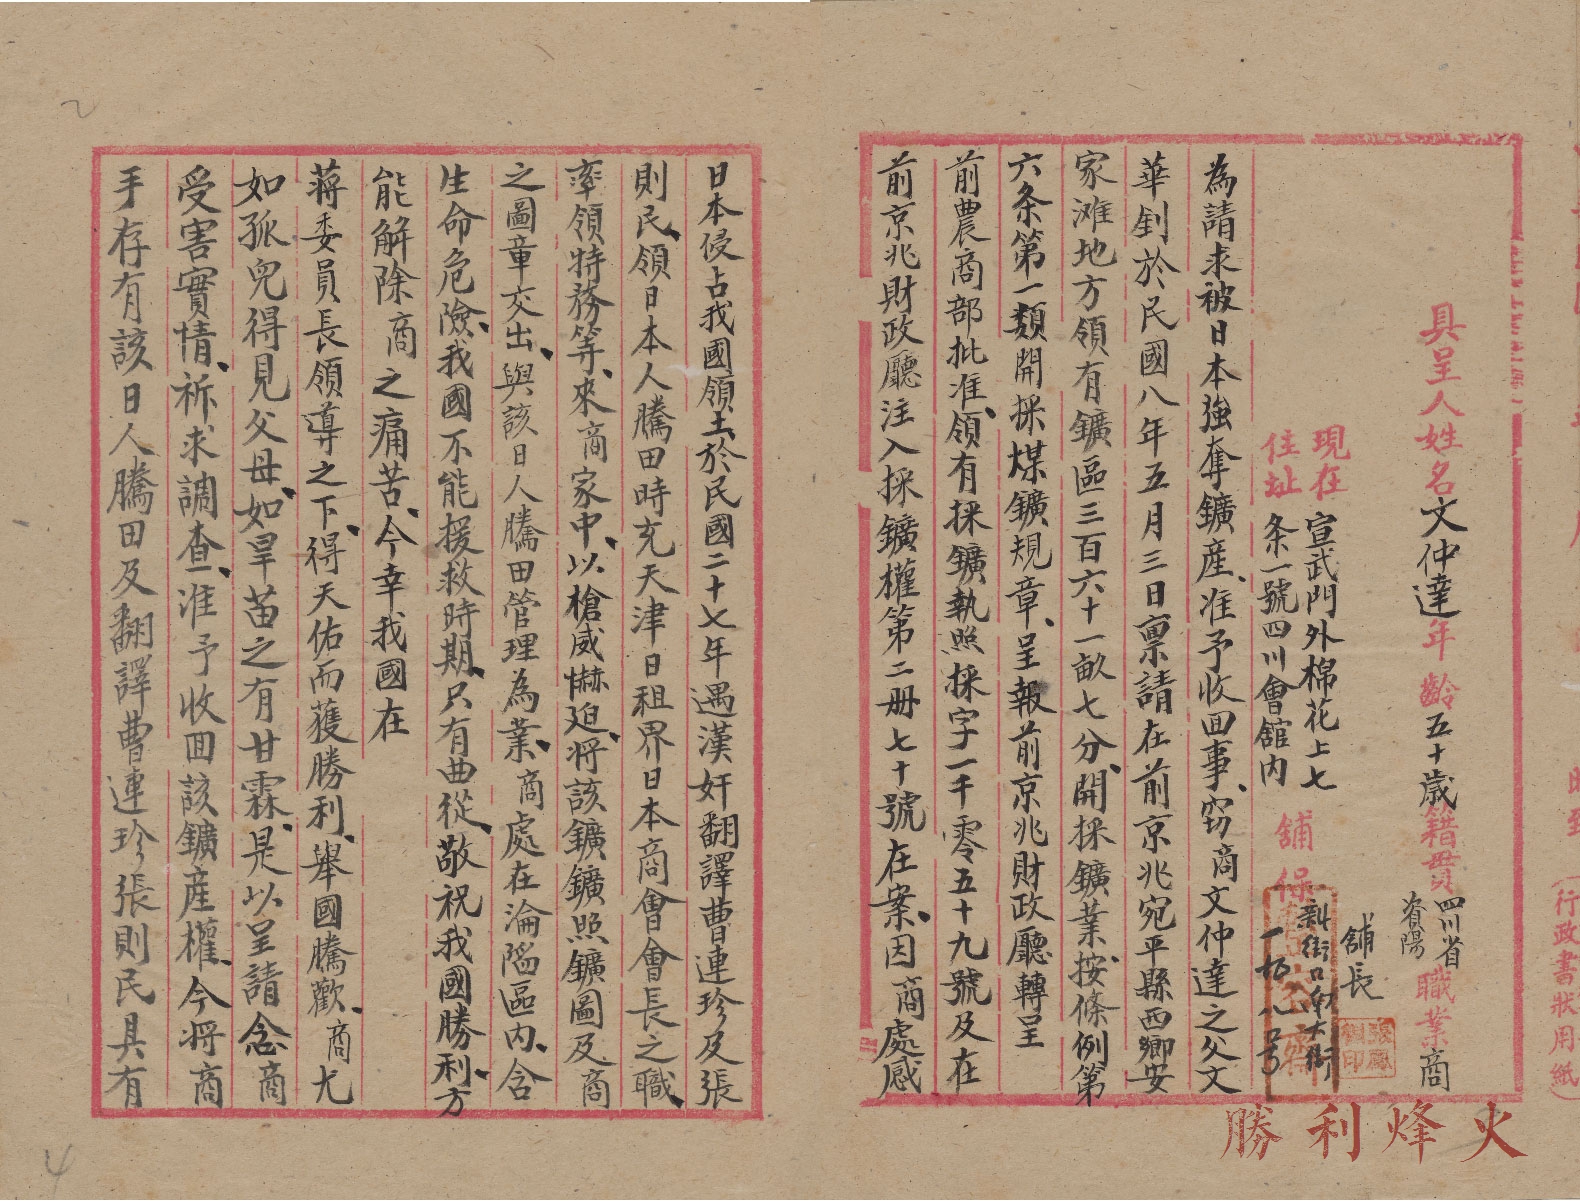 （行政書狀用紙）
具呈人姓名文仲達年齡五十歲籍貫四川省資陽職業商
現在住址宣武門外棉花上七条一號四川會館内
舖保
舖長
一百八号
為請求被日本強奪鑛産、准予收回事、窃商文仲達之父文
華釗於民國八年五月三日禀請在前京兆宛平縣西鄉安
家滩地方領有鑛區三百六十一畝七分、開採鑛業、按條例第
六条第一類開採煤鑛規章、呈報前京兆財政廳轉呈
前農商部批准、領有採鑛執照採字一千零五十九號及在
前京兆財政廳注入採鑛權第二册七十號在案、因商處感
日本侵占我國領土、於民國二十七年遇漢奸翻譯曹連珍及張
則民、領日本人騰田時充天津日租界日本商會會長之職、
率領特務等、來商家中、以槍威嚇迫、将該鑛鑛照鑛圖及商
之圖章交出、與該日人騰田管理為業、商處在淪陷區内、含
生命危險、我國不能援救時期、只有曲從、敬祝我國勝利、方
能解除商之痛苦、今幸我國在
蒋委員長領導之下、得天佑而獲勝利、舉國騰歡、商尤
如孤兒得見父母、如旱苗之有甘霖、是以呈請念商
受害實情、祈求調查、准予收回該鑛産權、今将商
手存有該日人騰田及翻譯曹連珍張則民具有
火烽利勝